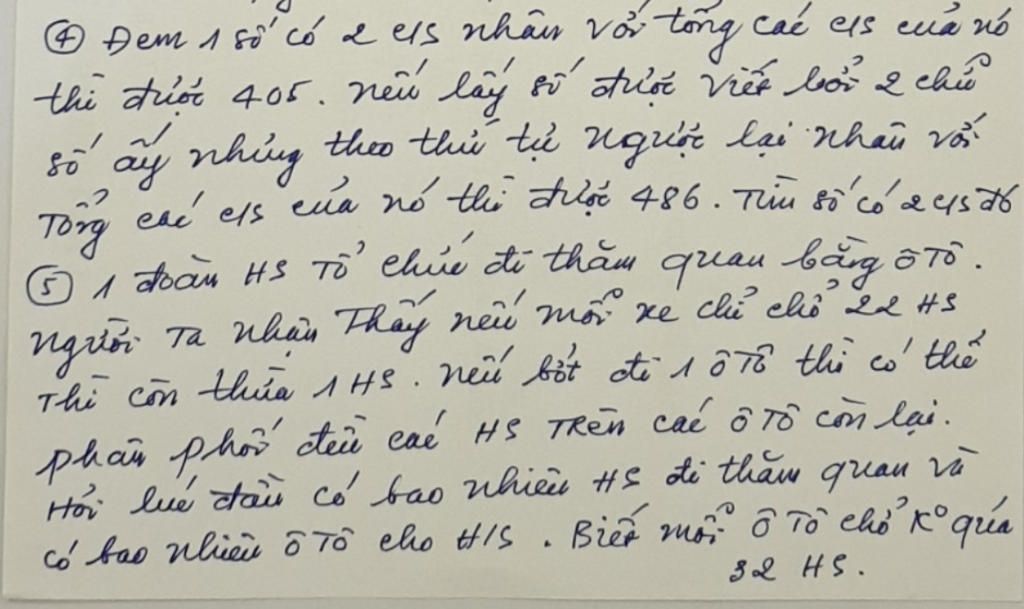 ④ Đem 1 số có 2 c/s nhân với tổng các c/s của nó
thì được 405. nếu lấy số được viết bởi 2 chữ
số ấy nhưng theo thứ tự ngược lại nhân với
Tổng các c/s của nó thì được 486. Tìm số có 2 c/s đó
⑤ 1 đoàn HS Tổ chức đi thăm quan bằng ô Tô.
Người Ta nhận Thấy nếu mỗi xe chỉ chở 22 HS
Thì còn thừa 1 HS. nếu bớt đi 1 ô Tô thì có thể
phân phối đều các HS Trên các ô Tô còn lại.
Hỏi lúc đầu có bao nhiêu HS đi thăm quan và
có bao nhiêu ô Tô cho H/S. Biết mỗi ô Tô chở K° quá
32 HS.